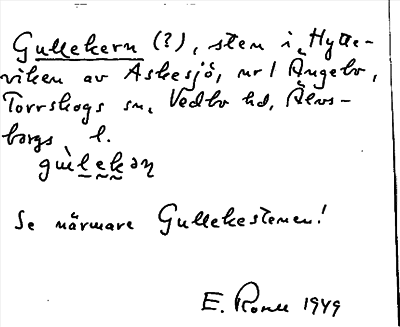 Gullekern (?), sten i Hytte-
viken av Askesjö, nr 1 Ängebo,
Torrskogs sn, Vedbo hd, Älvs-
borgs l.
gùlekəɳ
Se närmare Gullekestenen!
E. 1949